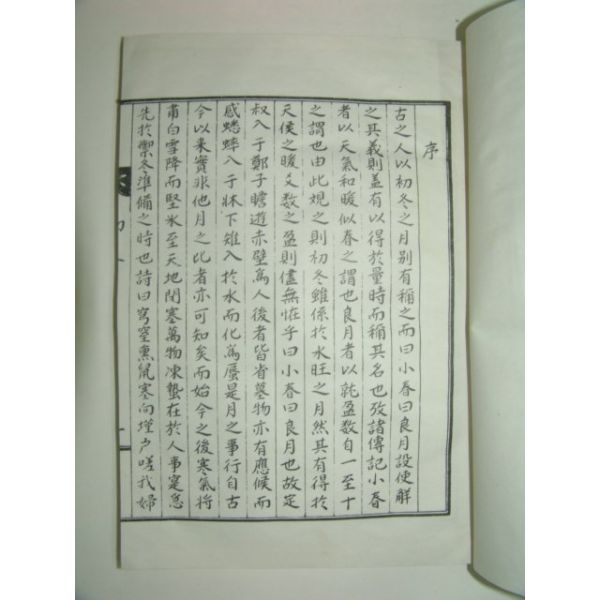 序
古之人以初冬之月别有稱之而曰小春曰良月設使解
之其義則盖有以得於量時而稱其名也攷諸傳記小春
者以天氣和暖似春之謂也良月者以就盈数自一至十
之謂也由此規之則初冬雖係於水旺之月然其有得於
天侯之暖爻数之盈則儘無恠乎曰小春曰良月也故定
叔入于鄭子瞻遊赤壁爲人後者皆省墓物亦有應候而
感蟋蟀入于牀下雉入於水而化爲蜃是月之事行自古
今以来實非他月之比者亦可知矣而始今之後寒氣將
肅白雪降而堅氷至天地閉塞萬物凍蟄在於人事寔急
先於禦冬準備之時也詩曰穹窒熏鼠塞向墐户嗟我婦